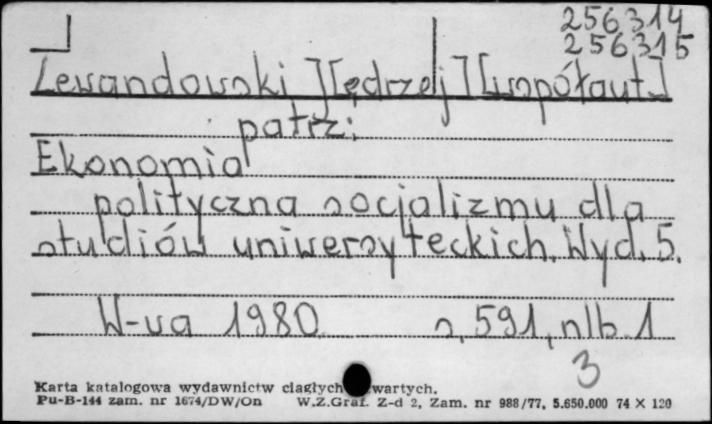 256314
256315
Lewandowski J[ędrzej] [współaut.]
patrz:
Ekonomia
polityczna socjalizmu dla
studiów uniwersyteckich. Wyd. 5.
W-wa 1980 s. 591, nlb. 1
3
Karta katalogowa wydawnictw ciągłych wartych.
Pu-B-144 zam. nr 1674/DW/On W.Z.Graf. Z-d 2, Zam. nr 988/77, 5.650.000 74 X 120